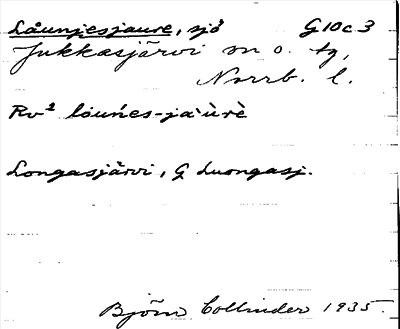 Låunjesjaure, sjö G10c3
Jukkasjärvi sn o. tg,
Norrb. l.
Rv² lóuńes-jaùrè
Longasjärvi, G Luongasj.
Björn Collinder 1935.